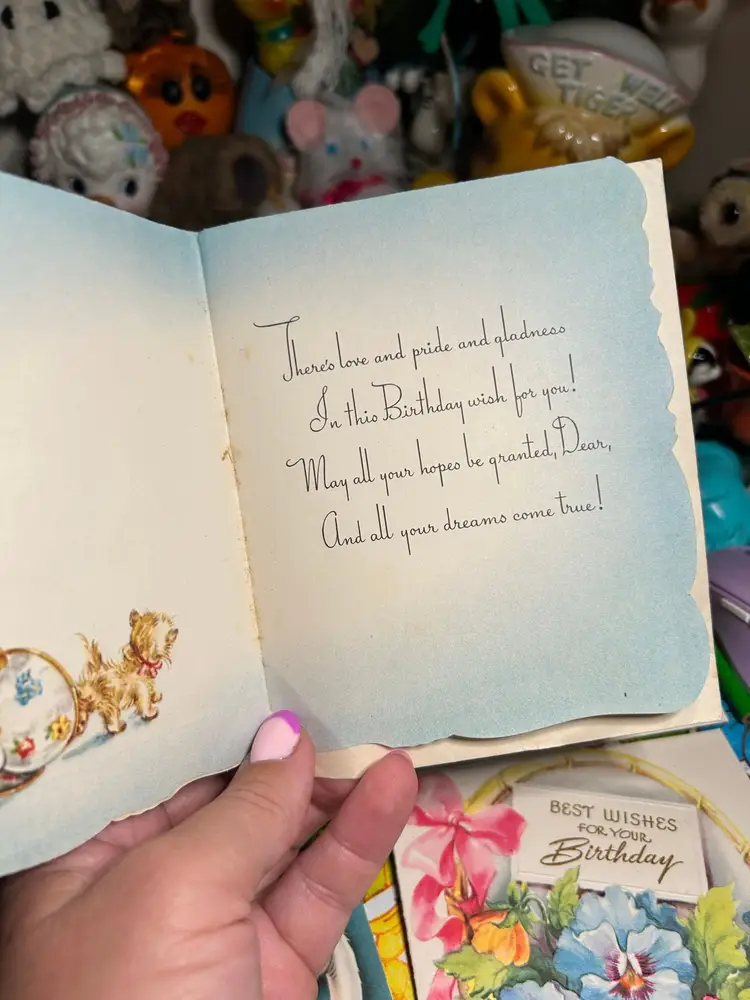 GET WELL
TIGER
There's love and pride and gladness
In this Birthday wish for you!
May all your hopes be granted, Dear,
And all your dreams come true!
BEST WISHES
FOR YOUR
Birthday